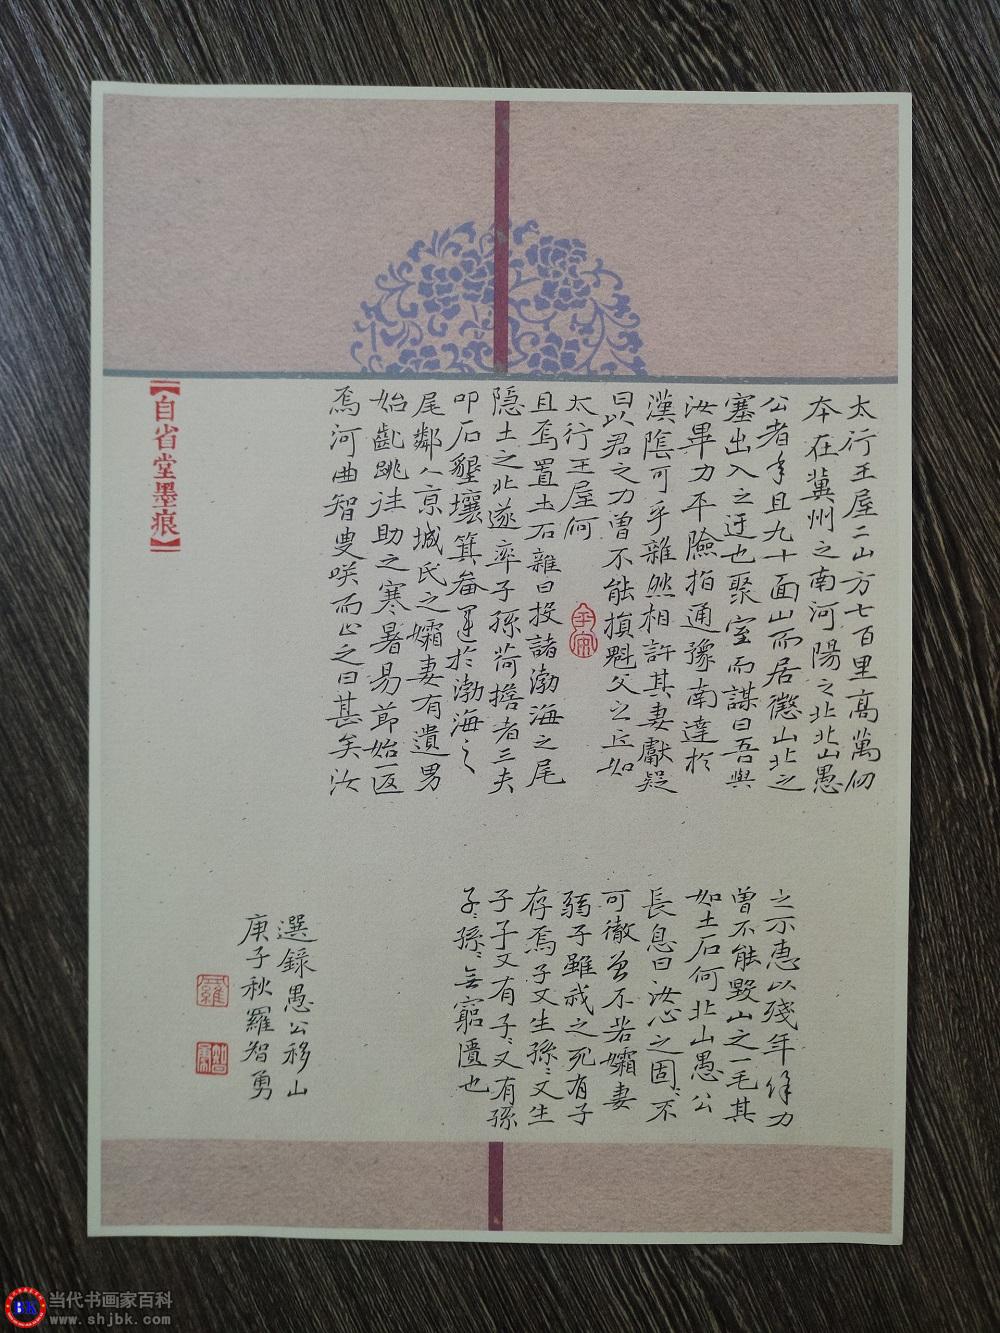 太行王屋二山方七百里高萬仞
本在冀州之南河陽之北北山愚
公者年且九十面山而居懲山北之
塞出入之迂也聚室而謀曰吾與
汝畢力平險指通豫南達於
漢陰可乎雜然相許其妻獻疑
曰以君之力曾不能損魁父之丘如
太行王屋何
且焉置土石雜曰投諸渤海之尾
隱土之北遂率子孫荷擔者三夫
叩石墾壤箕畚運於渤海之
尾鄰人京城氏之孀妻有遺男
始齔跳往助之寒暑易節始一返
焉河曲智叟咲而止之曰甚矣汝
之不惠以殘年餘力
曾不能毀山之一毛其
如土石何北山愚公
長息曰汝心之固〻不
可徹曾不若孀妻
弱子雖我之死有子
存焉子又生孫〻又生
子子又有子〻又有孫
子〻孫〻無窮匱也
選錄愚公移山
庚子秋羅智勇
羅
智勇
【自省堂墨痕】
BK
当代书画家百科
www.shjbk.com